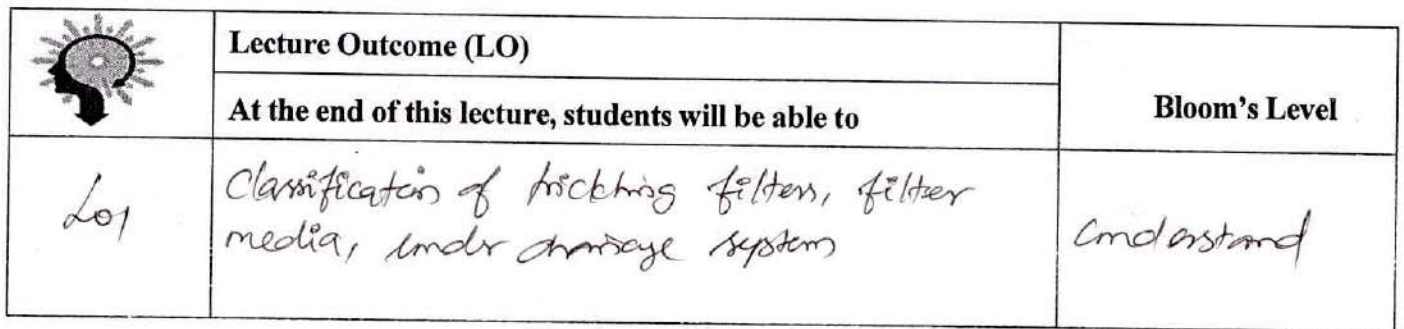 Lecture Outcome (LO)
At the end of this lecture, students will be able to
Bloom's Level
LO1
Classification of trickling filters, filter
media, under drainage system
Understand